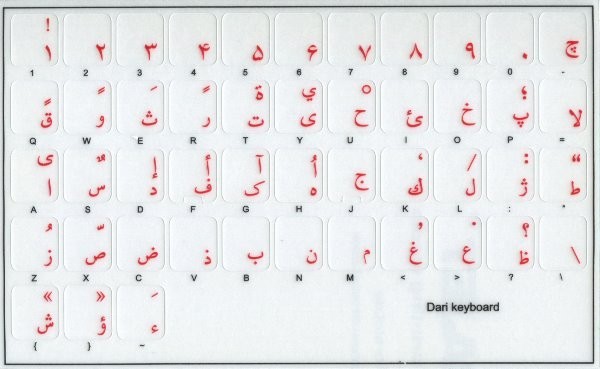 !
۱ ۲ ۳ ۴ ۵ ۶ ۷ ۸ ۹ ۰ چ
1 2 3 4 5 6 7 8 9 0 -
ة ي ؛
ق و ث ر ت ی ح ئ خ پ لا
Q W E R T Y U I O P =
ی إ أ آ أُ ، / : “
ا س د ف ک ه ج ك ل ژ ط
A S D F G H J K L : "
؟
ز ص ض ذ ب ن م غ ع ظ \
Z X C V B N M < > ? \
« »
ش ؤ ء
{ } ~
Dari keyboard